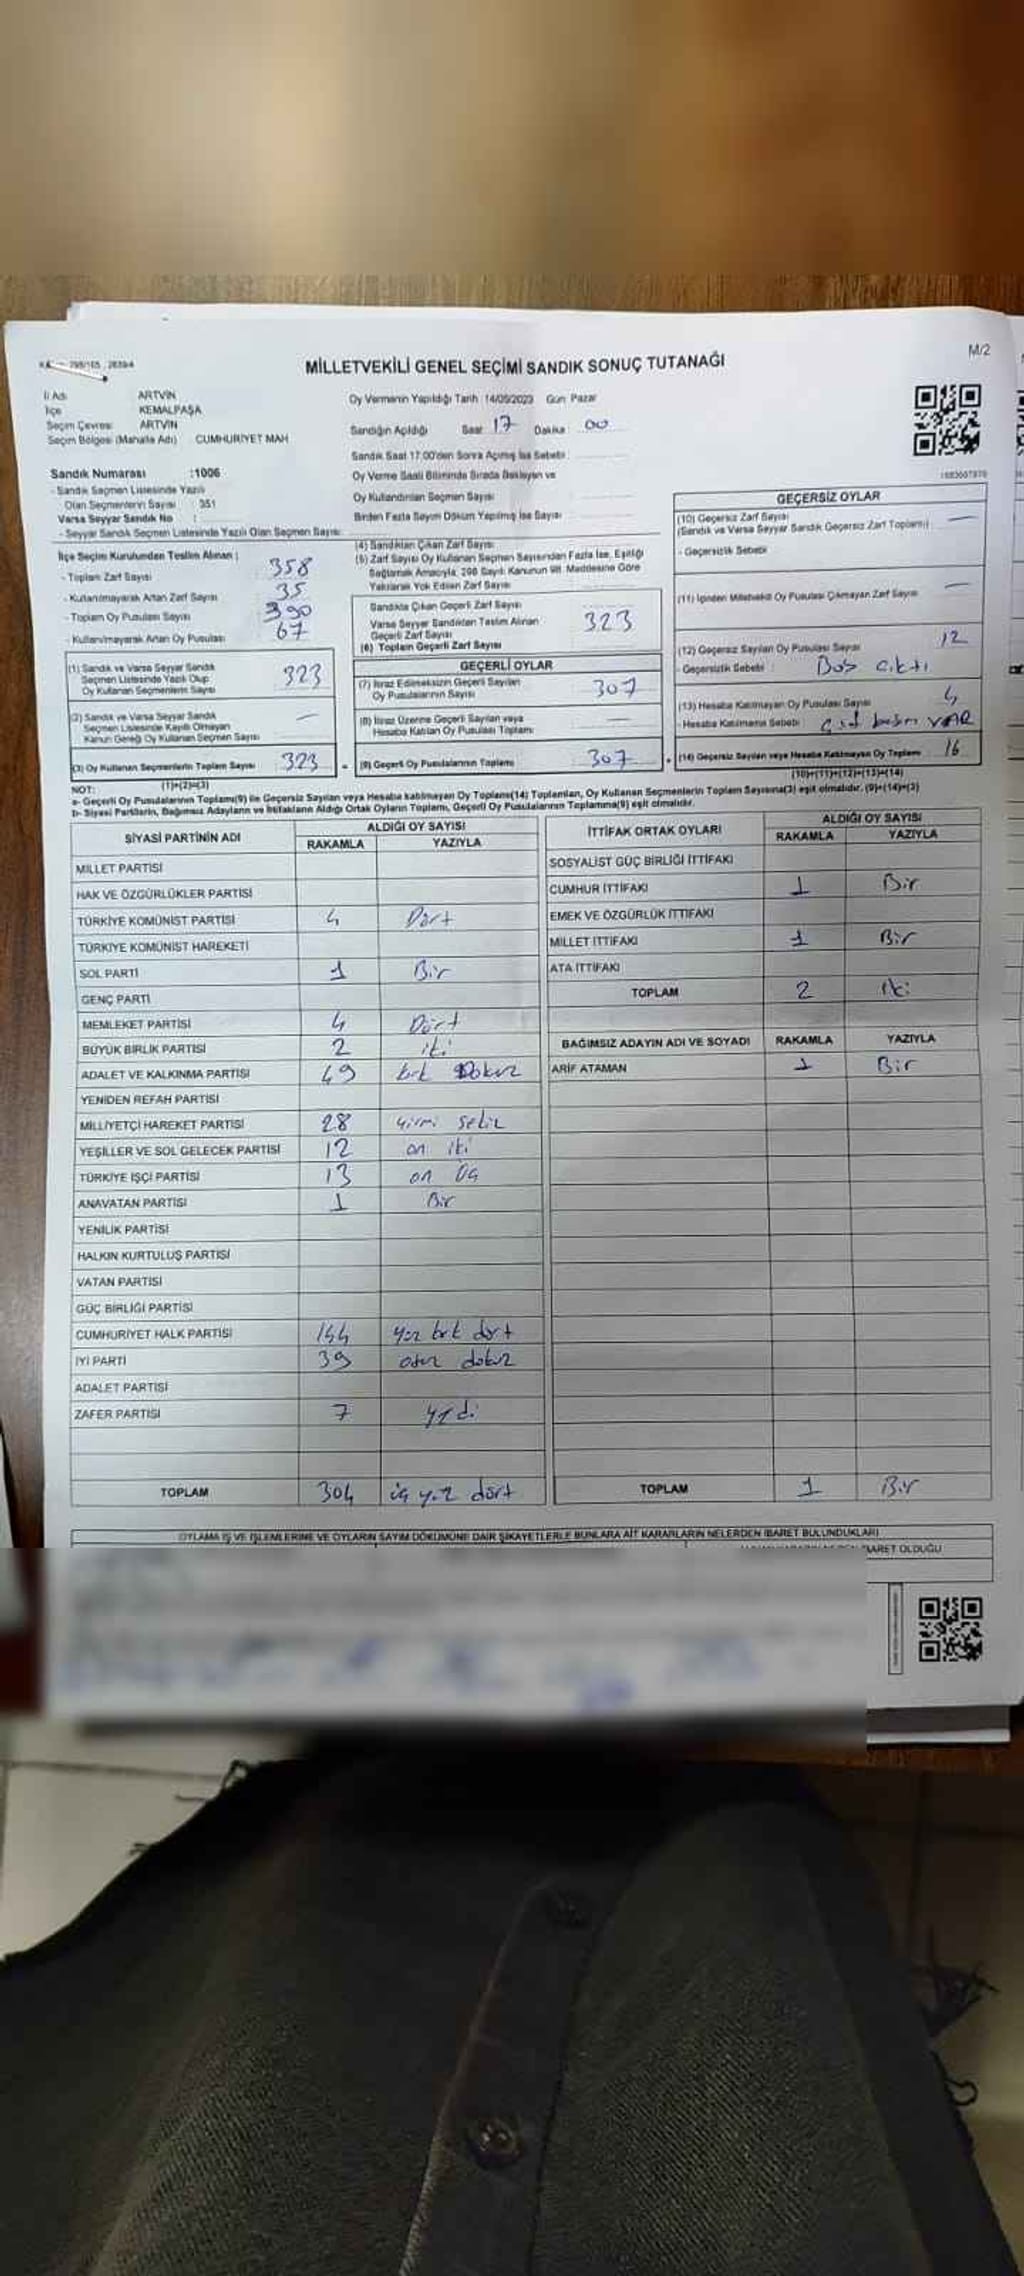 MİLLETVEKİLİ GENEL SEÇİMİ SANDIK SONUÇ TUTANAĞI
M/2
İl Adı ARTVİN
İlçe KEMALPAŞA
Seçim Çevresi ARTVİN
Seçim Bölgesi (Mahalle Adı) CUMHURİYET MAH
Oy Vermenin Yapıldığı Tarih 14/05/2023 Gün Pazar
Sandığın Açıldığı Saat 17 Dakika 00
Sandık Saat 17:00'den Sonra Açılmış İse Sebebi
Sandık Numarası :1006
- Sandık Seçmen Listesinde Yazılı
Olan Seçmenlerin Sayısı : 351
Varsa Seyyar Sandık No :
- Seyyar Sandık Seçmen Listesinde Yazılı Olan Seçmen Sayısı:
Oy Verme Saati Bitiminde Sırada Bekleyen ve
Oy Kullandırılan Seçmen Sayısı
Birden Fazla Sayım Döküm Yapılmış İse Sayısı
İlçe Seçim Kurulundan Teslim Alınan :
- Toplam Zarf Sayısı 358
- Kullanılmayarak Artan Zarf Sayısı 35
- Toplam Oy Pusulası Sayısı 390
- Kullanılmayarak Artan Oy Pusulası 67
(1) Sandık ve Varsa Seyyar Sandık
Seçmen Listesinde Yazılı Olup
Oy Kullanan Seçmenlerin Sayısı 323
(2) Sandık ve Varsa Seyyar Sandık
Seçmen Listesinde Kayıtlı Olmayan
Kanun Gereği Oy Kullanan Seçmen Sayısı —
(3) Oy Kullanan Seçmenlerin Toplam Sayısı 323
(1)+(2)=(3)
(4) Sandıktan Çıkan Zarf Sayısı
(5) Zarf Sayısı Oy Kullanan Seçmen Sayısından Fazla İse, Eşitliği
Sağlamak Amacıyla, 298 Sayılı Kanunun 98. Maddesine Göre
Yakılarak Yok Edilen Zarf Sayısı
Sandıkta Çıkan Geçerli Zarf Sayısı
Varsa Seyyar Sandıktan Teslim Alınan
Geçerli Zarf Sayısı
(6) Toplam Geçerli Zarf Sayısı 323
GEÇERLİ OYLAR
(7) İtiraz Edilmeksizin Geçerli Sayılan
Oy Pusulalarının Sayısı 307
(8) İtiraz Üzerine Geçerli Sayılan veya
Hesaba Katılan Oy Pusulası Toplamı —
(9) Geçerli Oy Pusulalarının Toplamı 307
GEÇERSİZ OYLAR
(10) Geçersiz Zarf Sayısı
(Sandık ve Varsa Seyyar Sandık Geçersiz Zarf Toplamı) —
- Geçersizlik Sebebi
(11) İçinden Milletvekili Oy Pusulası Çıkmayan Zarf Sayısı —
(12) Geçersiz Sayılan Oy Pusulası Sayısı 12
- Geçersizlik Sebebi : Boş çıktı
(13) Hesaba Katılmayan Oy Pusulası Sayısı 4
- Hesaba Katılmama Sebebi VAR
(14) Geçersiz Sayılan veya Hesaba Katılmayan Oy Toplamı 16
(10)+(11)+(12)+(13)=(14)
NOT:
a- Geçerli Oy Pusulalarının Toplamı(9) ile Geçersiz Sayılan veya Hesaba katılmayan Oy Toplamı(14) Toplamları, Oy Kullanan Seçmenlerin Toplam Sayısına(3) eşit olmalıdır. (9)+(14)=(3)
b- Siyasi Partilerin, Bağımsız Adayların ve İttifakların Aldığı Ortak Oyların Toplamı, Geçerli Oy Pusulalarının Toplamına(9) eşit olmalıdır.
SİYASİ PARTİNİN ADI ALDIĞI OY SAYISI
RAKAMLA YAZIYLA
MİLLET PARTİSİ
HAK VE ÖZGÜRLÜKLER PARTİSİ
TÜRKİYE KOMÜNİST PARTİSİ 4 Dört
TÜRKİYE KOMÜNİST HAREKETİ
SOL PARTİ 1 Bir
GENÇ PARTİ
MEMLEKET PARTİSİ 4 Dört
BÜYÜK BİRLİK PARTİSİ 2 iki
ADALET VE KALKINMA PARTİSİ 49 kırk Dokuz
YENİDEN REFAH PARTİSİ
MİLLİYETÇİ HAREKET PARTİSİ 28 yirmi sekiz
YEŞİLLER VE SOL GELECEK PARTİSİ 12 on iki
TÜRKİYE İŞÇİ PARTİSİ 13 on üç
ANAVATAN PARTİSİ 1 Bir
YENİLİK PARTİSİ
HALKIN KURTULUŞ PARTİSİ
VATAN PARTİSİ
GÜÇ BİRLİĞİ PARTİSİ
CUMHURİYET HALK PARTİSİ 144 yüz kırk dört
İYİ PARTİ 39 otuz dokuz
ADALET PARTİSİ
ZAFER PARTİSİ 7 yedi
TOPLAM 304 üç yüz dört
İTTİFAK ORTAK OYLARI ALDIĞI OY SAYISI
RAKAMLA YAZIYLA
SOSYALİST GÜÇ BİRLİĞİ İTTİFAKI
CUMHUR İTTİFAKI 1 Bir
EMEK VE ÖZGÜRLÜK İTTİFAKI
MİLLET İTTİFAKI 1 Bir
ATA İTTİFAKI
TOPLAM 2 iki
BAĞIMSIZ ADAYIN ADI VE SOYADI RAKAMLA YAZIYLA
ARİF ATAMAN 1 Bir
TOPLAM 1 Bir
OYLAMA İŞ VE İŞLEMLERİNE VE OYLARIN SAYIM DÖKÜMÜNE DAİR ŞİKAYETLERLE BUNLARA AİT KARARLARIN NELERDEN İBARET BULUNDUKLARI
OLDUĞU